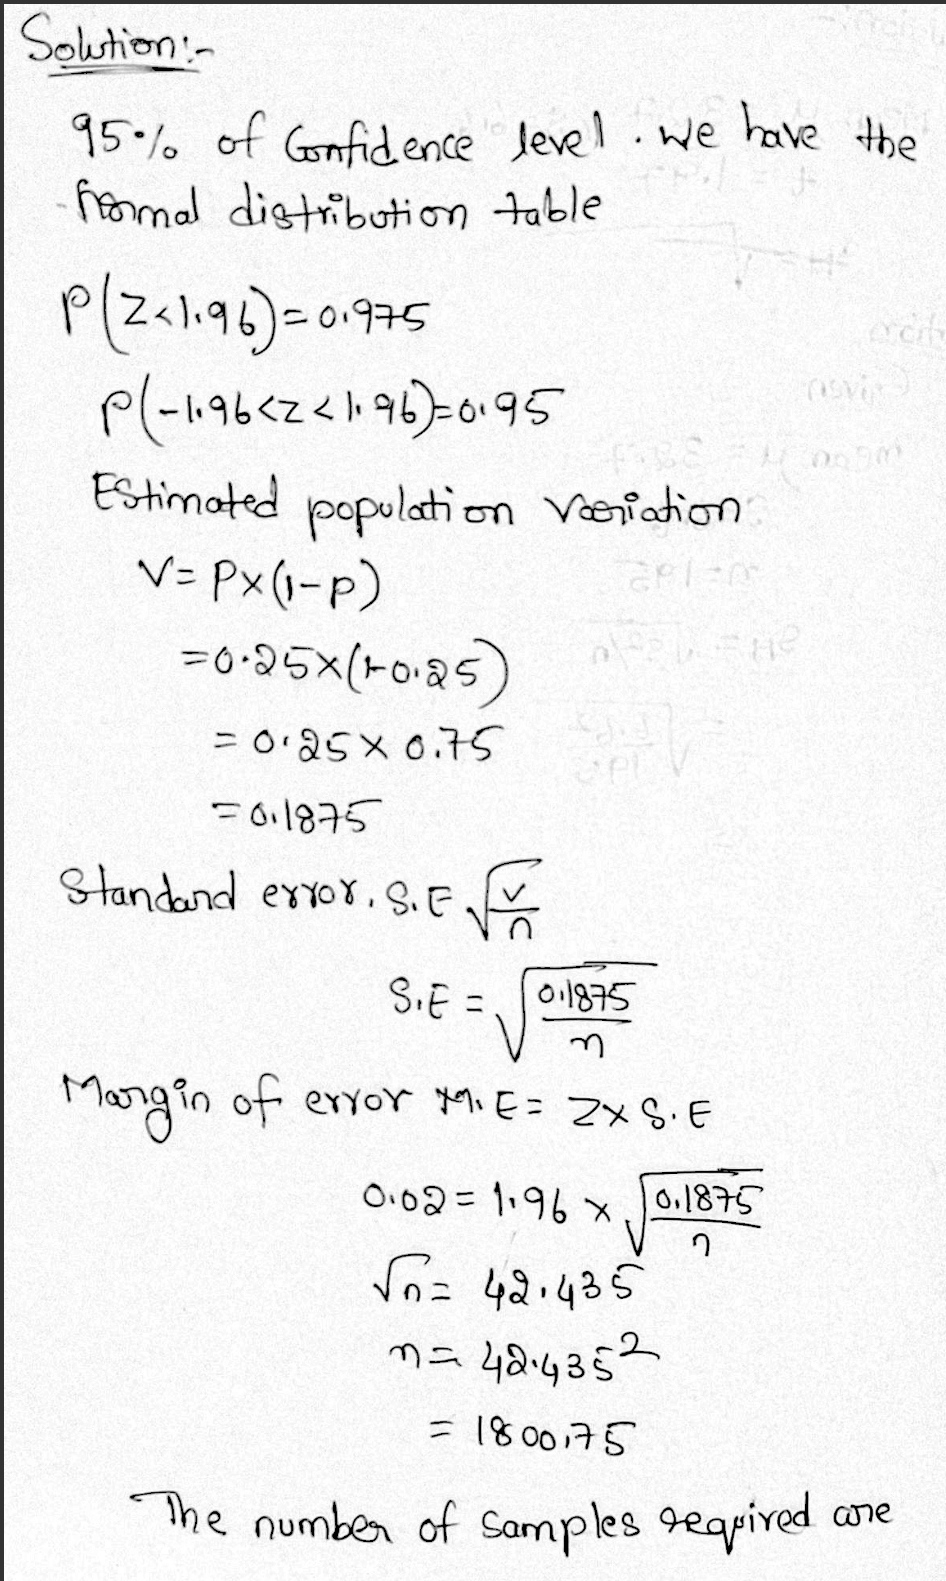 Solution:-
95% of Confidence level. we have the
normal distribution table
P(Z<1.96)=0.975
P(-1.96<Z<1.96)=0.95
Estimated population variation
V= P×(1-P)
=0.25×(1-0.25)
= 0.25 × 0.75
=0.1875
Standard error, S.E √(V/n)
S.E = √(0.1875/n)
Margin of error M.E= Z× S.E
0.02 = 1.96 × √(0.1875/n)
√n= 42.435
n= 42.435²
= 1800.75
The number of samples required are